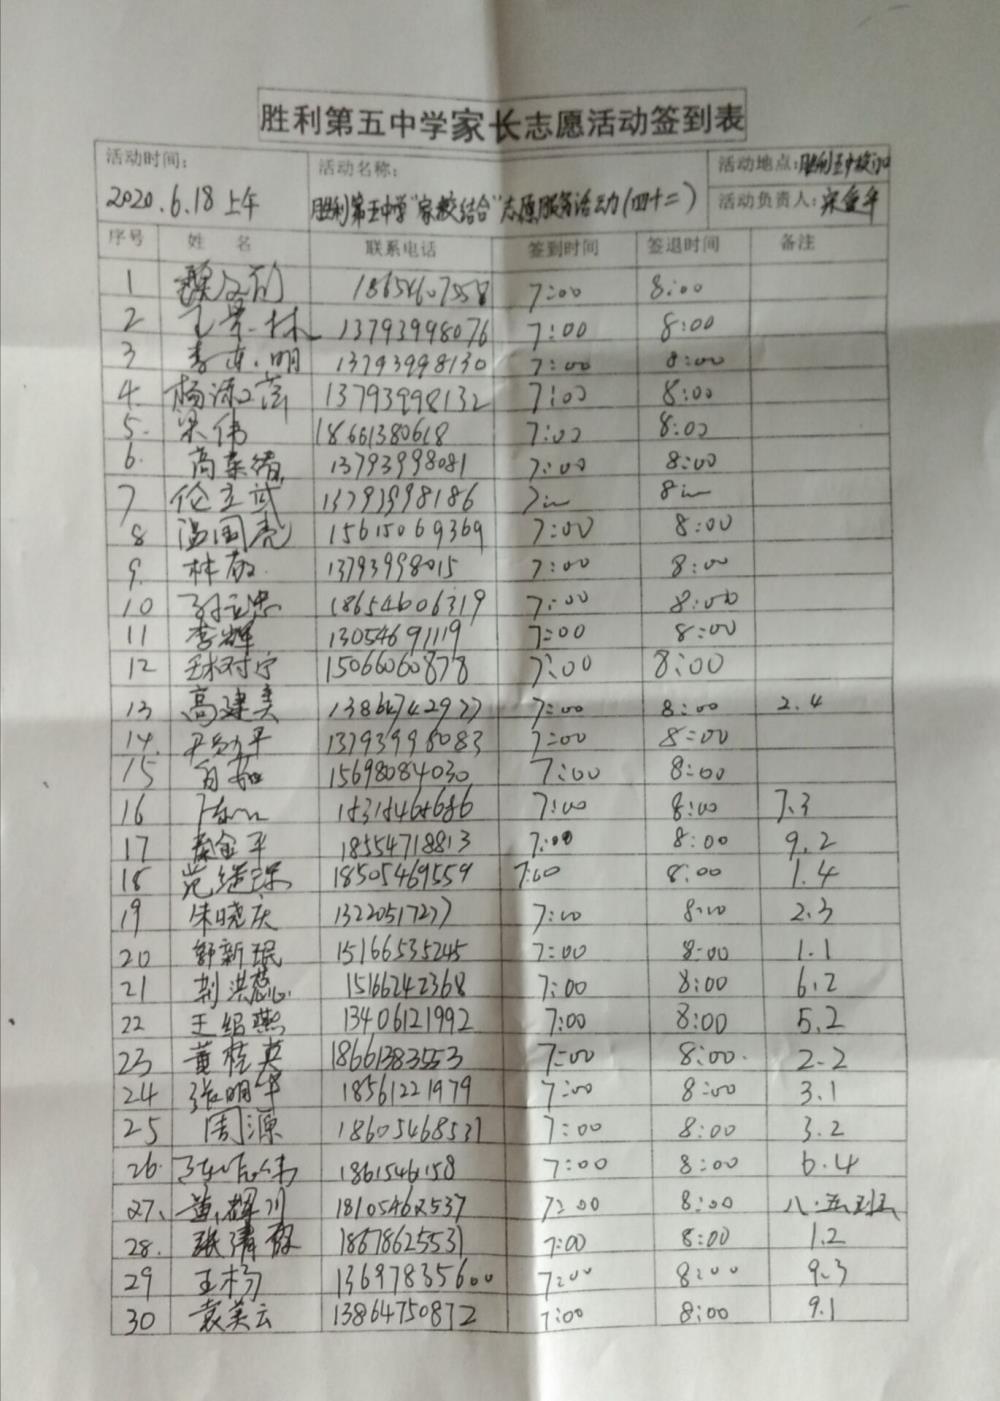 胜利第五中学家长志愿活动签到表
活动时间: 活动名称: 活动地点:胜利五中校门口
2020.6.18上午 胜利第五中学“家校结合”志愿服务活动(四十二) 活动负责人:
序号 姓 名 联系电话 签到时间 签退时间 备注
1 18654607558 7:00 8:00
2 王景林 13793998076 7:00 8:00
3 李东明 13793998130 7:00 8:00
4. 杨 13793998132 7:00 8:00
5. 梁伟 18661380618 7:00 8:00
6. 高荣绪 13793998081 7:00 8:00
7 伦立武 13793998186
8 温国亮 15615069369 7:00 8:00
9. 林敏 13793998015 7:00 8:00
10 孙立忠 18654606319 7:00 8:00
11 李辉 13054691119 7:00 8:00
12 15066060878 7:00 8:00
13 高建美 13864742977 7:00 8:00 2.4
14. 7:00 8:00
15 15698084030 7:00 8:00
16 7:00 8:00 7.3
17 秦金平 18554718813 7:00 8:00 9.2
18 范继琛 18505469559 7:00 8:00 1.4
19 朱晓庆 13220517277 7:00 8:00 2.3
20 舒新珉 15166535245 7:00 8:00 1.1
21 荆洪蕊 15166242368 7:00 8:00 6.2
22 王绍燕 13406121992 7:00 8:00 5.2
23 黄桂英 18661383553 7:00 8:00. 2.2
24 张明华 18561221979 7:00 8:00 3.1
25 周源 18605468531 7:00 8:00 3.2
26. 1861546158 7:00 8:00 6.4
27、 黄耀川 18105462537 7:00 8:00 八.五班
28. 张清 18678625531 7:00 8:00 1.2
29 王杨 13697835600 7:00 8:00 9.3
30 袁美云 13864750872 7:00 8:00 9.1